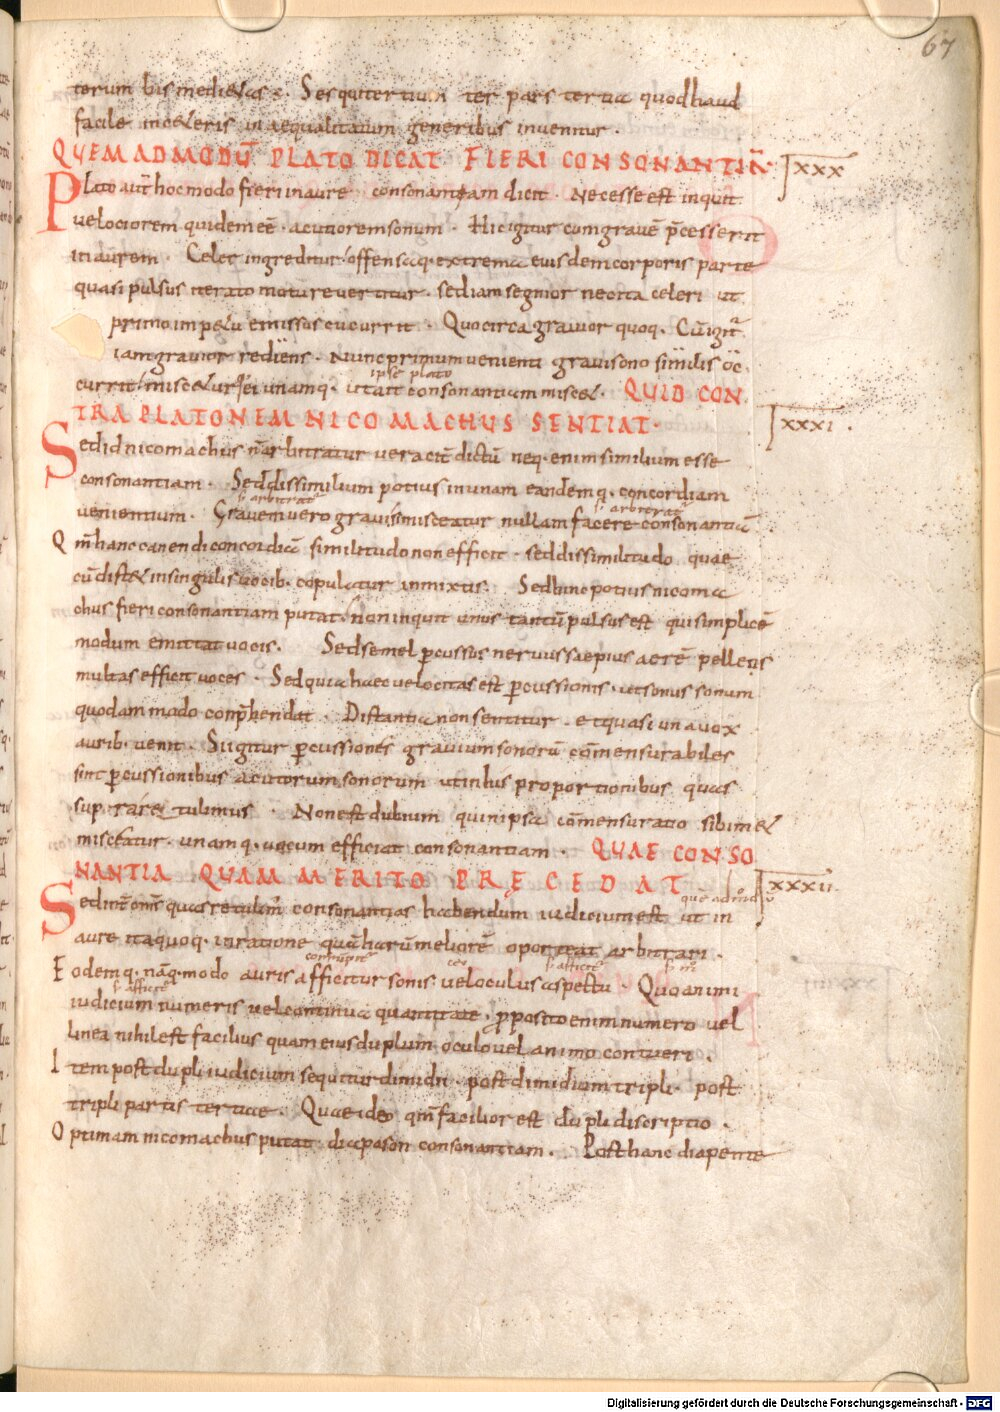 67
terum bis medietas ę. Sesquitertium ter pars tertia quod haud
facile in ceteris inaequalitatum generibus invenitur.
QUEMADMODŪ PLATO DICAT FIERI CONSONANTIĀ. XXX
Plato aut hoc modo fieri in aure consonantiam dicit. Necesse est inquit
velociorem quidem eē. acutiorem sonum. Hic igitur cum gravē p̄cesserit
in aurem. Celer ingreditur. offensaq. extrema eiusdem corporis parte
quasi pulsus iterato motu revertitur. sed iam segnior nec ita celer ut
primo impetu emissus cucurrit. Quocirca gravior quoq. Cū igit̄
iam gravior rediens. Nunc primum venienti gravi sono similis oc
ipse plato
currit miscetur ei unamq. ut ait consonantiam miscet. QUID CON
TRA PLATONEM NICOMACHUS SENTIAT. XXXI.
Sed id nicomachus n̄ arbitratur veracit̄ dictū neq. enim similium esse
consonantiam. Sed dissimilium potius in unam eandemq. concordiam
s. arbitrat̄ s. arbitrat̄
venientium. Gravem vero gravi si misceatur nullam facere consonantiā
Qm̄ hanc canendi concordiā similitudo non efficit. sed dissimilitudo quae
cū distet in singulis vocib. copulatur in mixtis. Sed hinc potius nicoma
chus fieri consonantiam putat. non inquit unus tantū pulsus est qui simplicē
modum emittat vocis. Sed semel p̄cussus nervus saepius aerē pellens
multas efficit voces. Sed quia haec velocitas est p̄cussionis. ut sonus sonum
quodammodo conp̄hendat. Distantia non sentitur. et quasi una vox
aurib. venit. Si igitur p̄cussiones gravium sonorū com̄ensurabiles
sint p̄cussionibus acutorum sonorum ut in his proportionibus quas
sup. ra retulimus. Non est dubium quin ipsa com̄ensuratio sibimet
misceatur. unamq. vocum efficiat consonantiam. QUAE CONSO
NANTIA QUAM MERITO PRĘCEDAT XXXII.
que admodū
Sed int̄ om̄s quas retulim̄ consonantias habendum iudicium est ut in
aure itaquoq. in ratione quā harū meliorē oporteat arbitrari.
s. afficit̄
Eodemq. nāq. modo auris afficitur sonis. vel oculus aspectu. Quo animi
s. afficit̄
iudicium numeris vel continua quantitate. p̄posito enim numero vel
linea nihil est facilius quam eius duplum oculo vel animo contueri.
Item post dupli iudicium sequitur dimidii. post dimidium tripli. post
tripli partis tertiae. Quae ideo qm̄ facilior est dupli discriptio.
Optimam nicomachus putat diapason consonantiam. Post hanc diapente
Digitalisierung gefördert durch die Deutsche Forschungsgemeinschaft - DFG